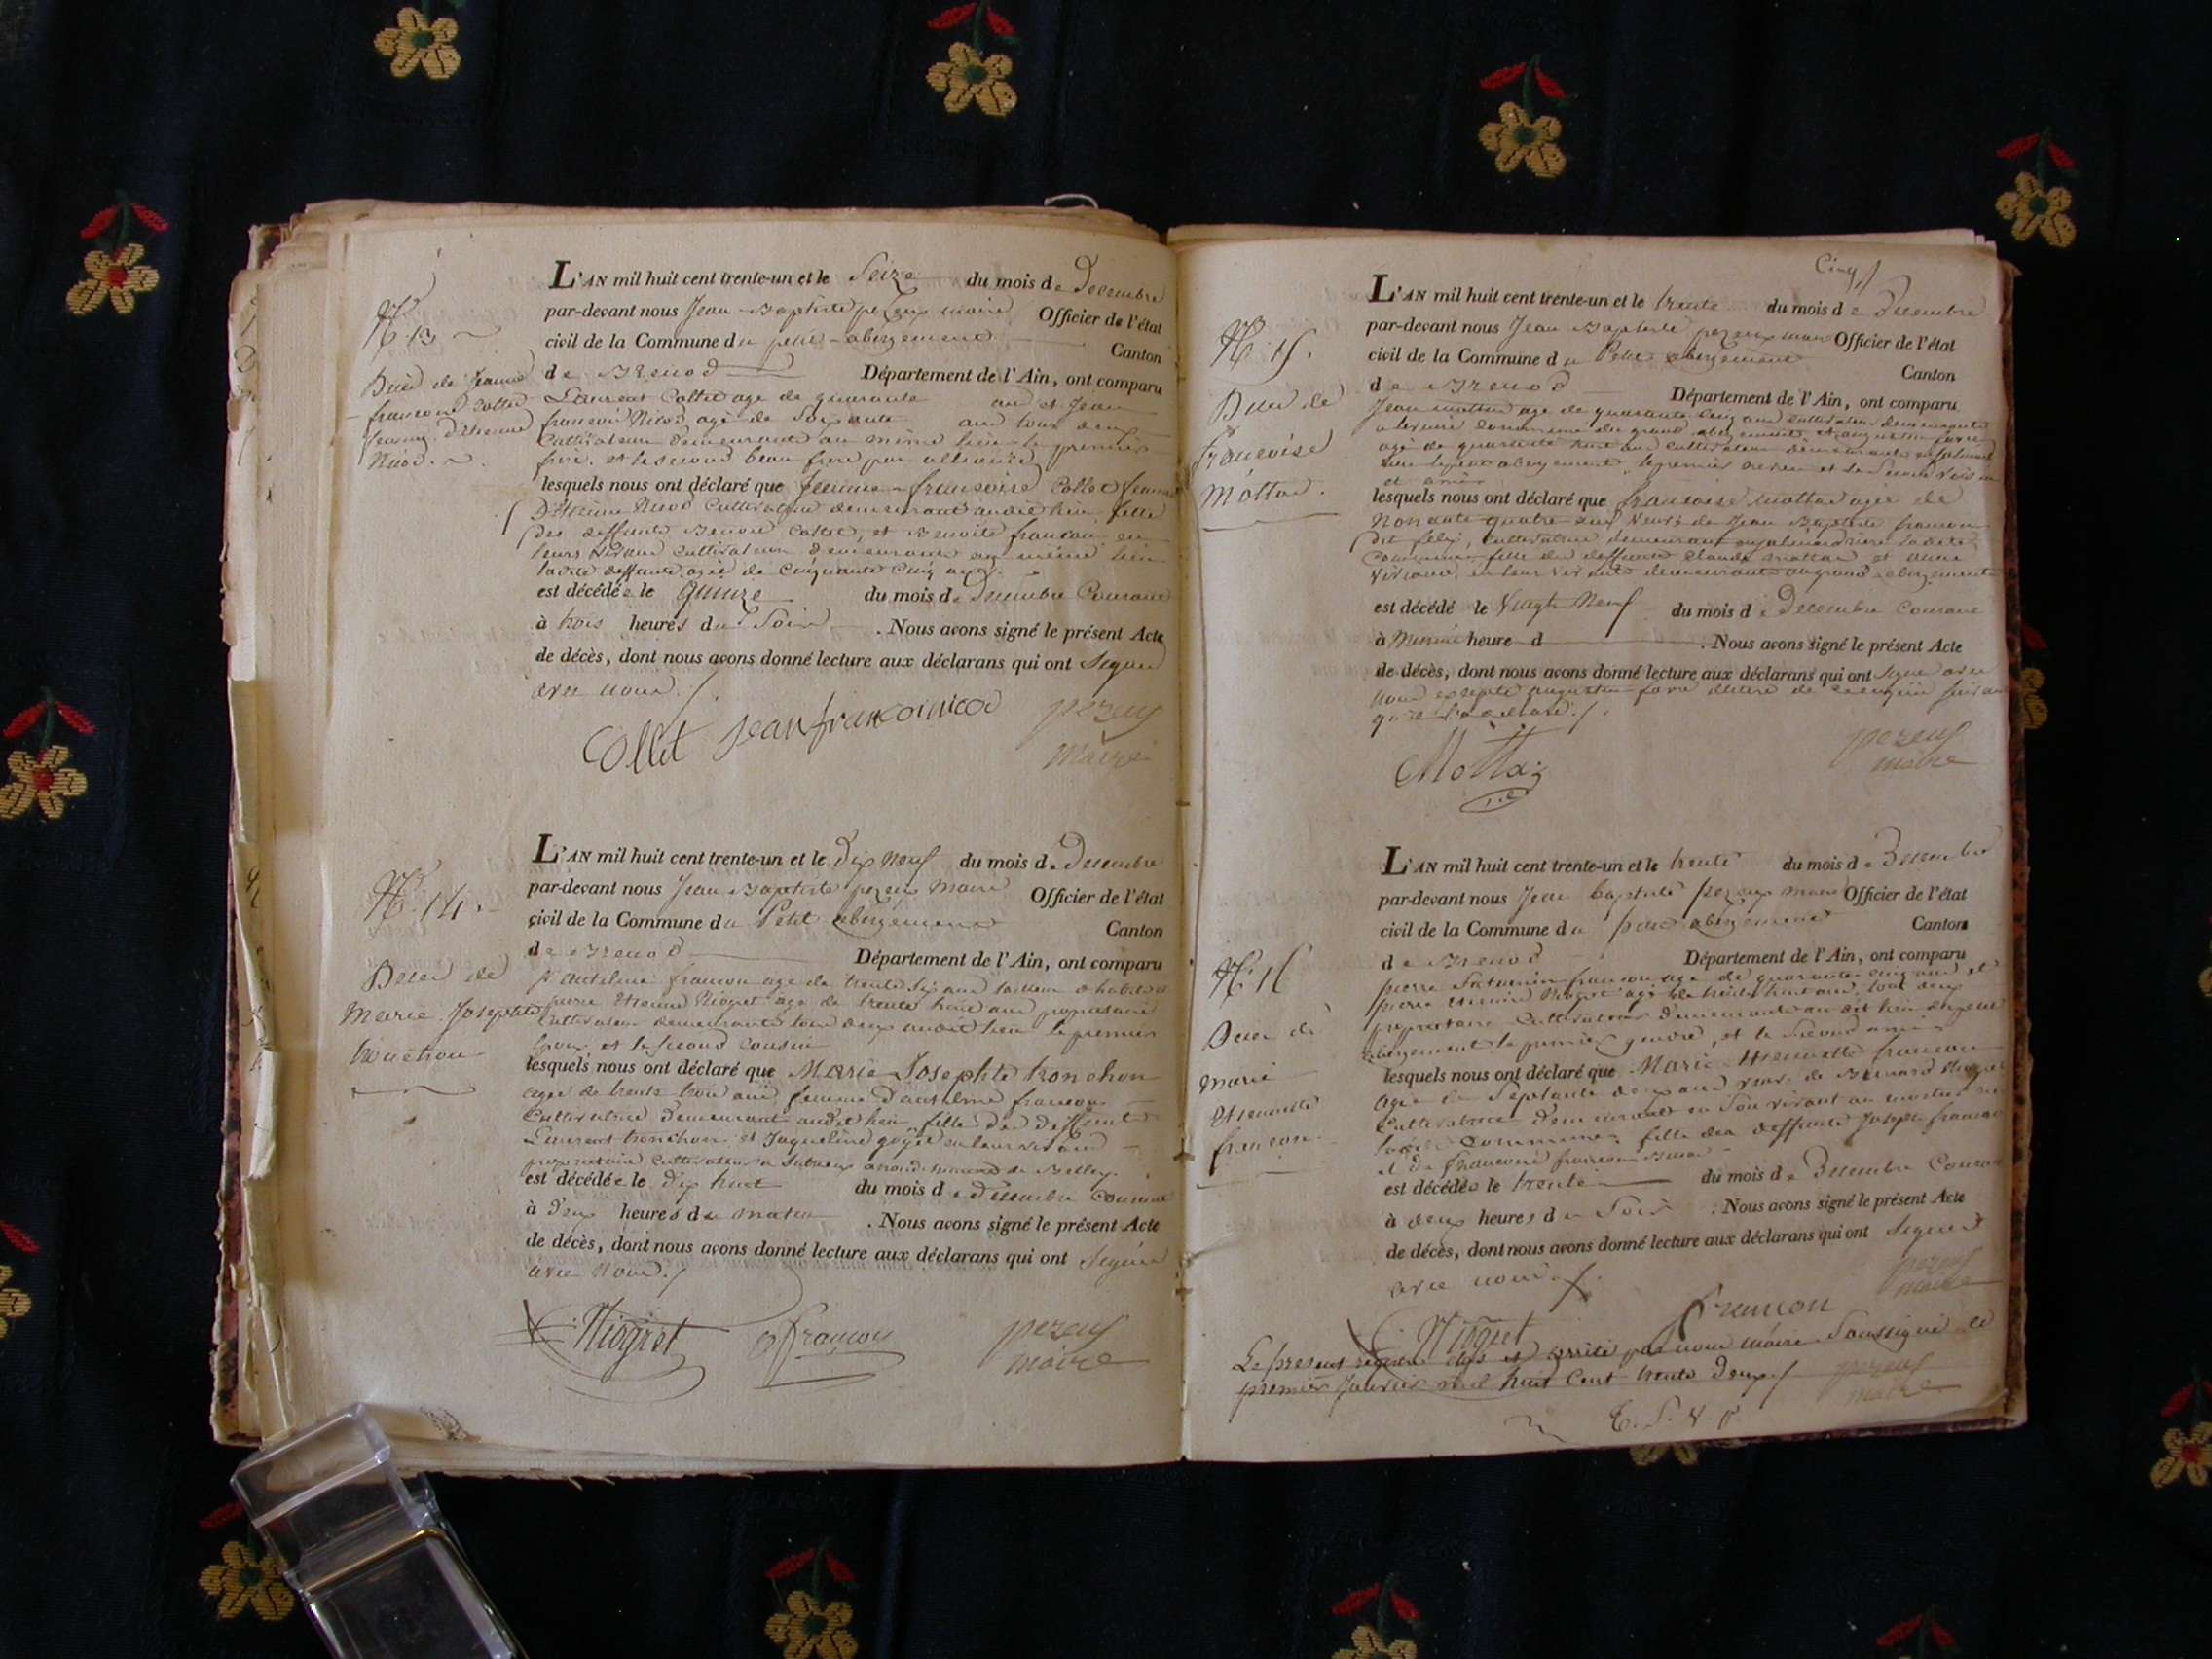 N.° 13
Deces de Jeanne
francoise Collet
femme d'Etienne
Nicod.
L'AN mil huit cent trente-un et le Seize du mois de Decembre
par-devant nous Jean-Baptiste pezeux maire Officier de l'état
civil de la Commune du petit-abergement Canton
de Brenod Département de l'Ain, ont comparu
Laurent Collet age de quarante ans et Jean
francois Nicod agé de Soixante ans tous deux
Cultivateurs demeurants au même lieu le premier
frere et le second beau frere par alliance
lesquels nous ont déclaré que Jeanne-francoise Collet femme
D'Etienne Nicod Cultivatrice demeurant audit lieu fille
des deffunts Benoit Collet, et Benoite francon en
leurs vivans cultivateurs demeurants au même lieu
ladite deffunte agée de Cinquante Cinq ans.
est décédée le quinze du mois de Decembre Courant
à trois heures du Soir. Nous avons signé le présent Acte
de décès, dont nous avons donné lecture aux déclarans qui ont Signé
avec nous./.
Collet Jean francoi nicod pezeux
maire
N.° 14.
Deces de
Marie Josephte
tronchon
L'AN mil huit cent trente-un et le Dix Neuf du mois de Decembre
par-devant nous Jean Baptiste pezeux Maire Officier de l'état
civil de la Commune du Petit abergement Canton
de Brenod Département de l'Ain, ont comparu
Antelme francon age de trente Six ans
pierre Etienne Niogret age de trente huit ans proprietaire
Cultivateur demeurants tous deux audit lieu le premier
Epoux et le second cousin
lesquels nous ont déclaré que Marie Josephte tronchon
agée de trente trois ans femme d'anthelme francon
Cultivatrice demeurant audit lieu, fille des deffunts
Laurent tronchon et Jaqueline goyet en leur vivant
proprietaire Cultivateurs a Sutrieux arrondissement de Belley.
est décédée le dix huit du mois de Decembre courant
à deux heures du matin. Nous avons signé le présent Acte
de décès, dont nous avons donné lecture aux déclarans qui ont Signé
avec nous./
Niogret francon pezeux
maire
Cinq
N.° 15.
Deces de
francoise
Mottaz.
L'AN mil huit cent trente-un et le trente du mois de Decembre
par-devant nous Jean Baptiste pezeux maire Officier de l'état
civil de la Commune du Petit abergement Canton
de Brenod Département de l'Ain, ont comparu
Jean mottaz age de quarante cinq ans cultivateur demeurant
commune du grand abergement, et augustin favre
agé de quarante huit ans cultivateur demeurant
petit abergement, le premier neveu et le Second voisin
et ami
lesquels nous ont déclaré que francoise mottaz agée de
Nonante quatre ans Veuve de Jean Baptiste francon
dit felix, cultivatrice demeurant ladite
Commune fille des deffunts Claude mottaz et anne
en leur vivant demeurants au grand abergement
est décédé le Vingt Neuf du mois de Decembre Courant
à Minuit heure d . Nous avons signé le présent Acte
de décès, dont nous avons donné lecture aux déclarans qui ont Signé avec
nous excepté augustin favre
Mottaz pezeux
maire
N.° 16
Deces de
marie
Etiennette
francon
L'AN mil huit cent trente-un et le trente du mois de Decembre
par-devant nous Jean baptiste pezeux maire Officier de l'état
civil de la Commune du petit abergement Canton
de Brenod Département de l'Ain, ont comparu
pierre francon age de quarante cinq ans et
pierre etienne Niogret agé de trente huit ans, tous deux
proprietaire Cultivateurs demeurants au dit lieu du petit
abergement le premier gendre, et le Second ami
lesquels nous ont déclaré que Marie Etiennette francon
Agée de Septante deux ans veuve de Bernard Niogret
Cultivatrice demeurant en Son vivant
Commune, fille des deffunts Joseph francon
et de francoise
est décédée le trente du mois de Decembre Courant
à deux heures du Soir. Nous avons signé le présent Acte
de décès, dont nous avons donné lecture aux déclarans qui ont Signé
avec nous./.
pezeux
maire
Niogret francon
Le present registre clos et arreté par nous maire Soussigné le
premier Janvier mil huit Cent trente Deux./. pezeux
maire
T. S. V. P